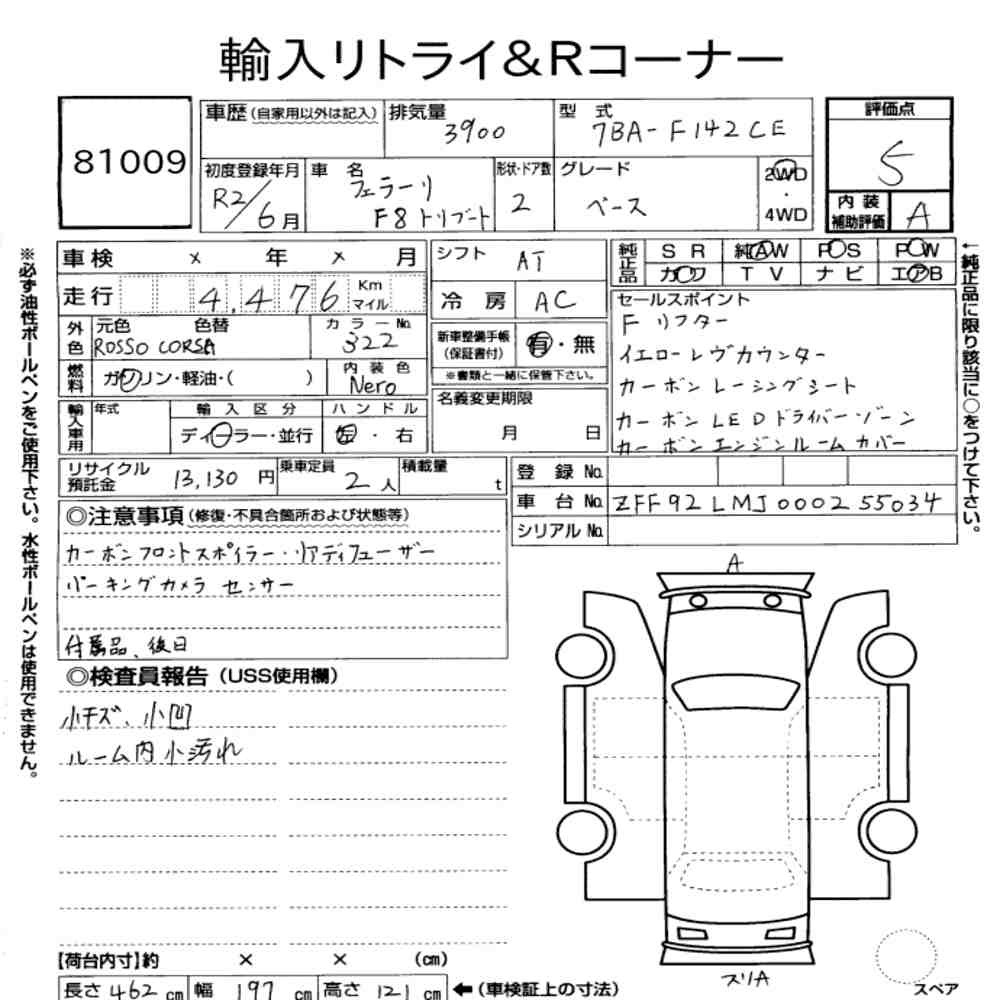 輸入リトライ&Rコーナー
81009
車歴(自家用以外は記入)
排気量 3900
型式 7BA-F142CE
評価点 5
初度登録年月 R2/6月
車名 フェラーリ F8トリブート
形状・ドア数 2
グレード ベース
2WD・4WD
内装補助評価 A
車検 × 年 × 月
シフト AT
純正品 SR 純AW PS PW
カワ TV ナビ エアB
走行 4,476 Km マイル
冷房 AC
セールスポイント
Fリフター
イエローレヴカウンター
カーボンレーシングシート
カーボンLEDドライバーゾーン
カーボンエンジンルームカバー
外色 元色 色替 ROSSO CORSA
カラーNo. 322
新車整備手帳(保証書付) 有・無
※書類と一緒に保管下さい。
燃料 ガソリン・軽油・( )
内装色 Nero
名義変更期限 月 日
輸入車用 年式
輸入区分 ディーラー・並行
ハンドル 左・右
リサイクル預託金 13,130円
乗車定員 2人
積載量 t
登録No.
車台No. ZFF92LMJ000255034
シリアルNo.
◎注意事項(修復・不具合箇所および状態等)
カーボンフロントスポイラー・リアディフューザー
パーキングカメラ センサー
付属品、後日
◎検査員報告(USS使用欄)
小キズ、小凹
ルーム内小汚れ
A
スリA
スペア
【荷台内寸】約 × × (cm)
長さ 462 cm 幅 197 cm 高さ 121 cm ←(車検証上の寸法)
※必ず油性ボールペンをご使用下さい。水性ボールペンは使用できません。
←純正品に限り該当に○をつけて下さい。